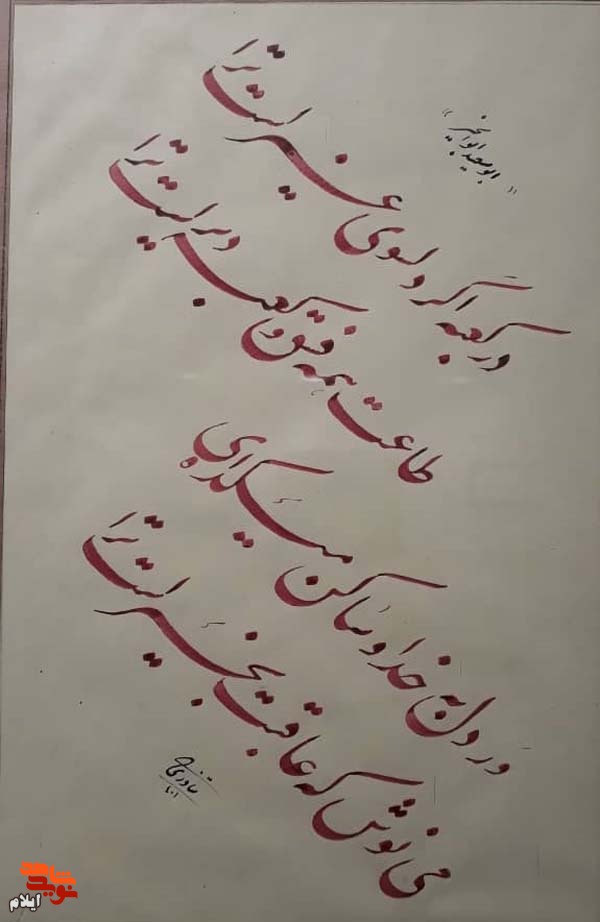 « ابوسعید ابوالخیر »
در کعبه اگر دل سوی غیر است ترا
طاعت همه فسق و کعبه دیر است ترا
ور دل به خدا و ساکن میکده‌ای
می نوش که عاقبت بخیر است ترا
نوید شاهد
ایلام